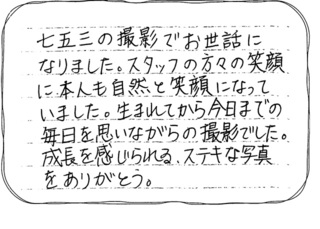 七五三の撮影でお世話に
なりました。スタッフの方々の笑顔
に本人も自然と笑顔になって
いました。生まれてから今日までの
毎日を思いながらの撮影でした。
成長を感じられる、ステキな写真
をありがとう。